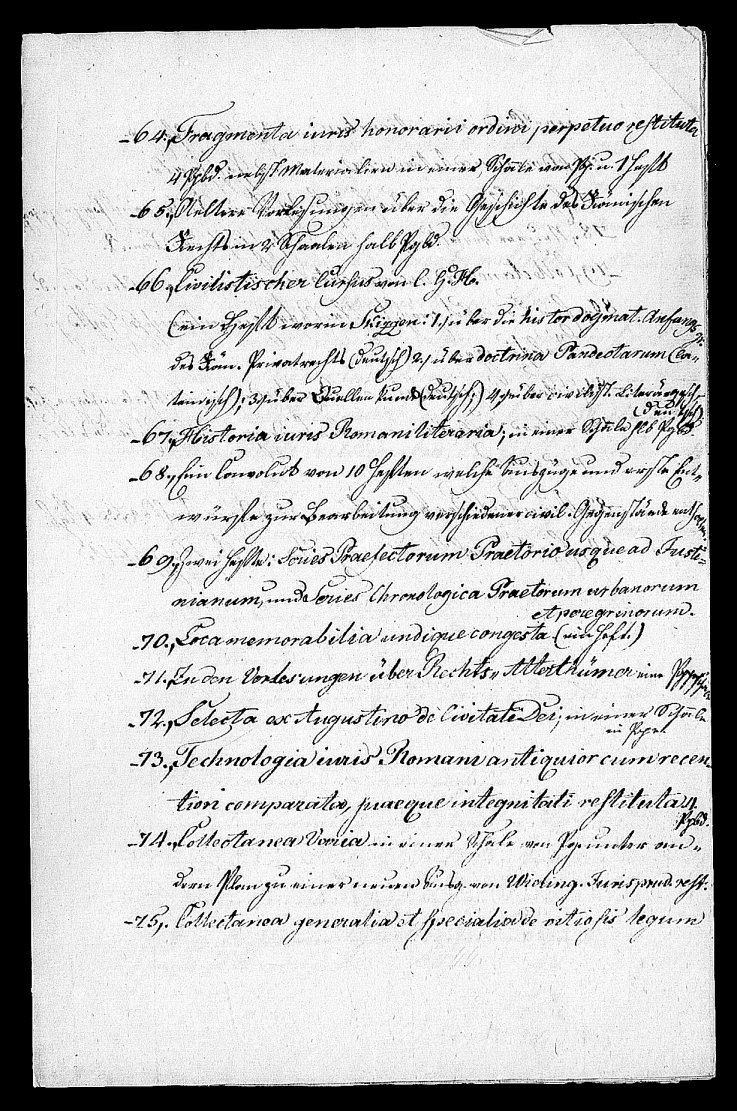 -64., Fragmenta iuris honorarii ordini perpetuo restituta
4 Ppbd. nebst Materialien in einer Schale von Pp. u. 1 Heft
-65., Aeltere Vorlesungen über die Geschichte des Römischen
Rechts in 2 Schaalen halb Ppbd.
-66., Civilistischer Cursus von C. G. H.
(ein Heft worin Skizzen: 1.) über die histor dogmat. Anfangsgr.
des Röm. Privatrechts (deutsch) 2.) über doctrina Pandectarum (la-
teinisch); 3.) über Quellen kunde (deutsch;) 4.) über civilist. Literärgesch.
(deutsch)
-67., Historia iuris Romani literaria, in einer Schale hlb Ppbd
-68., Ein Convolut von 10 Heften welche Auszüge und erste Ent-
würfe zur Bearbeitung verschiedener civil. Gegenstände enthalten.
-69., Zwei Hefte: Series Praefectorum Praetorio usque ad Justi-
nianum, und Series Chronologica Praetorum urbanorum
et peregrinorum.
-70., Loca memorabilia undique congesta (ein Heft.)
-71., Zu den Vorlesungen über Rechts-Alterthümer eine
-72., Selecta ex Augustino de Civitate Dei, in einer Schale
in Ppe.
-73., Technologia iuris Romani antiquior cum recen-
tiori comparata, suaeque integritati restituta 4
Ppbd.
-74., Collectanea Varia in einer Schale von Pp. unter an-
dern Plan zu einer neuen Ausg. von Wieling. Jurisprud. rest.
-75., Collectanea generalia et specialia de vitiosis legum